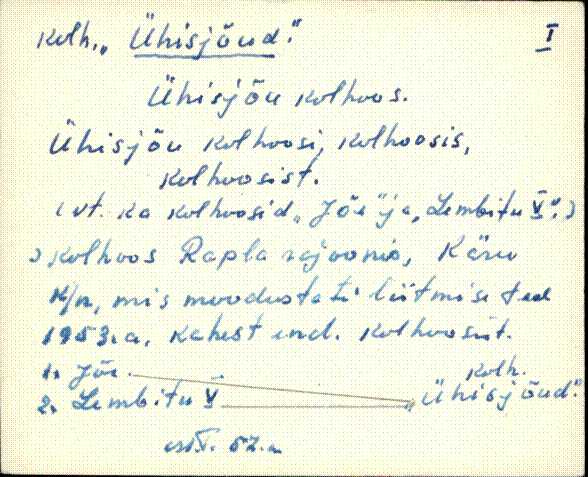 Kolh. „Ühisjõud."
I
Ühisjõu kolhoos.
Ühisjõu kolhoosi, kolhoosis,
kolhoosist.
(vt. ka kolhoosid „Jõe" ja „Lembitu V".)
kolhoos Rapla rajoonis, Käru
K/n, mis moodustati liitmise teel
1953.a. kahest end. kolhoosist.
1. Jõe.
2. Lembitu V
kolh.
„Ühisjõud".
57.a